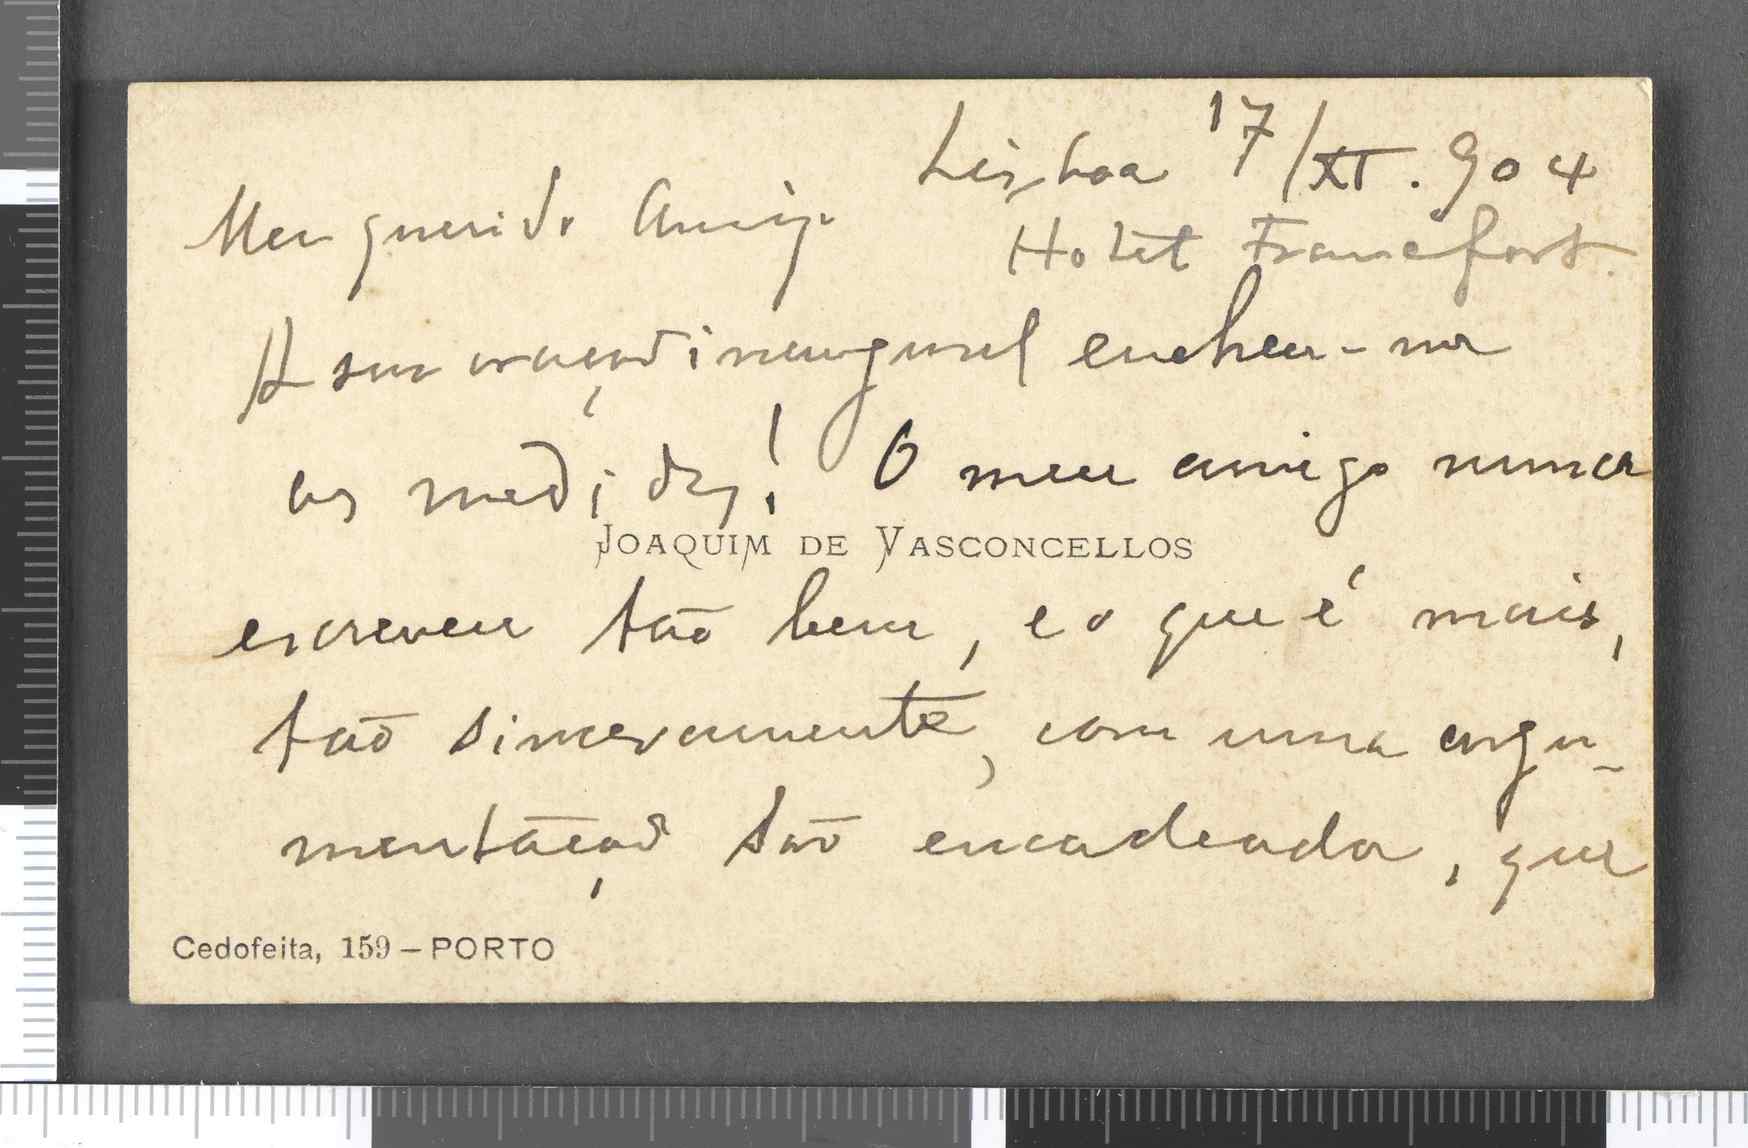 Lisboa 17/XI.904
Meu querido Amigo
Hotel Francfort.
A sua oração inaugural encheu-me
as medidas! O meu amigo nunca
JOAQUIM DE VASCONCELLOS
escreveu tão bem, e o que é mais,
tão sinceramente, com uma argu-
mentação tão encadeada, que
Cedofeita, 159 – PORTO